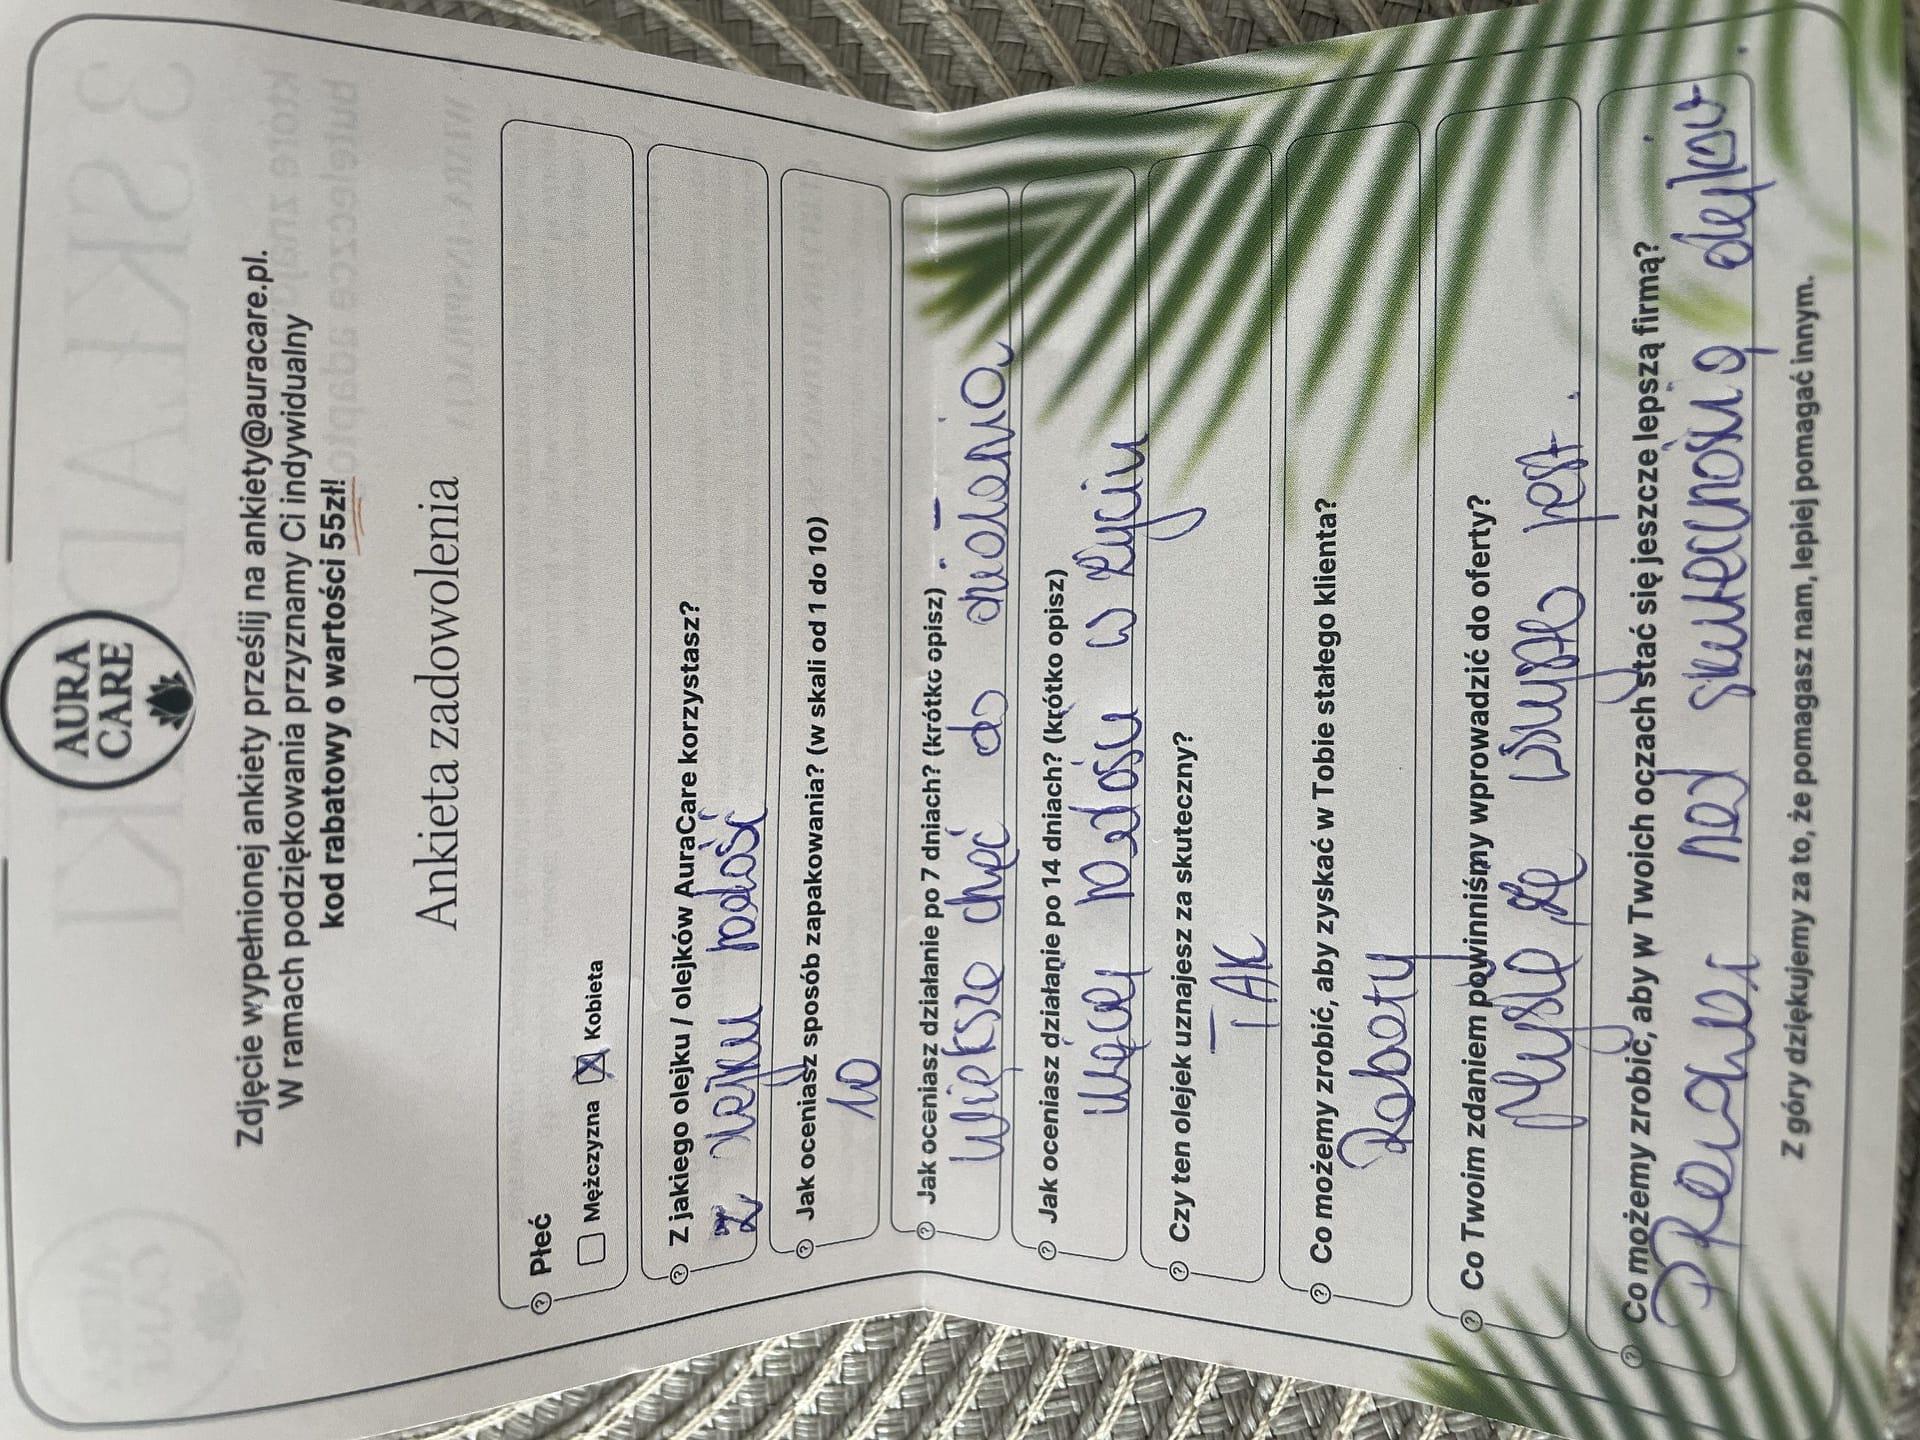 AURA
CARE
Zdjęcie wypełnionej ankiety prześlij na ankiety@auracare.pl.
W ramach podziękowania przyznamy Ci indywidualny
kod rabatowy o wartości 55zł!
Ankieta zadowolenia
Płeć
Mężczyzna Kobieta
Z jakiego olejku / olejków AuraCare korzystasz?
Z olejku radość
Jak oceniasz sposób zapakowania? (w skali od 1 do 10)
10
Jak oceniasz działanie po 7 dniach? (krótko opisz)
Większe chęć do działania
Jak oceniasz działanie po 14 dniach? (krótko opisz)
więcej radości w życiu
Czy ten olejek uznajesz za skuteczny?
TAK
Co możemy zrobić, aby zyskać w Tobie stałego klienta?
Rabaty
Co Twoim zdaniem powinniśmy wprowadzić do oferty?
Myślę że wszystko jest.
Co możemy zrobić, aby w Twoich oczach stać się jeszcze lepszą firmą?
Pracować nad skutecznością olejków.
Z góry dziękujemy za to, że pomagasz nam, lepiej pomagać innym.